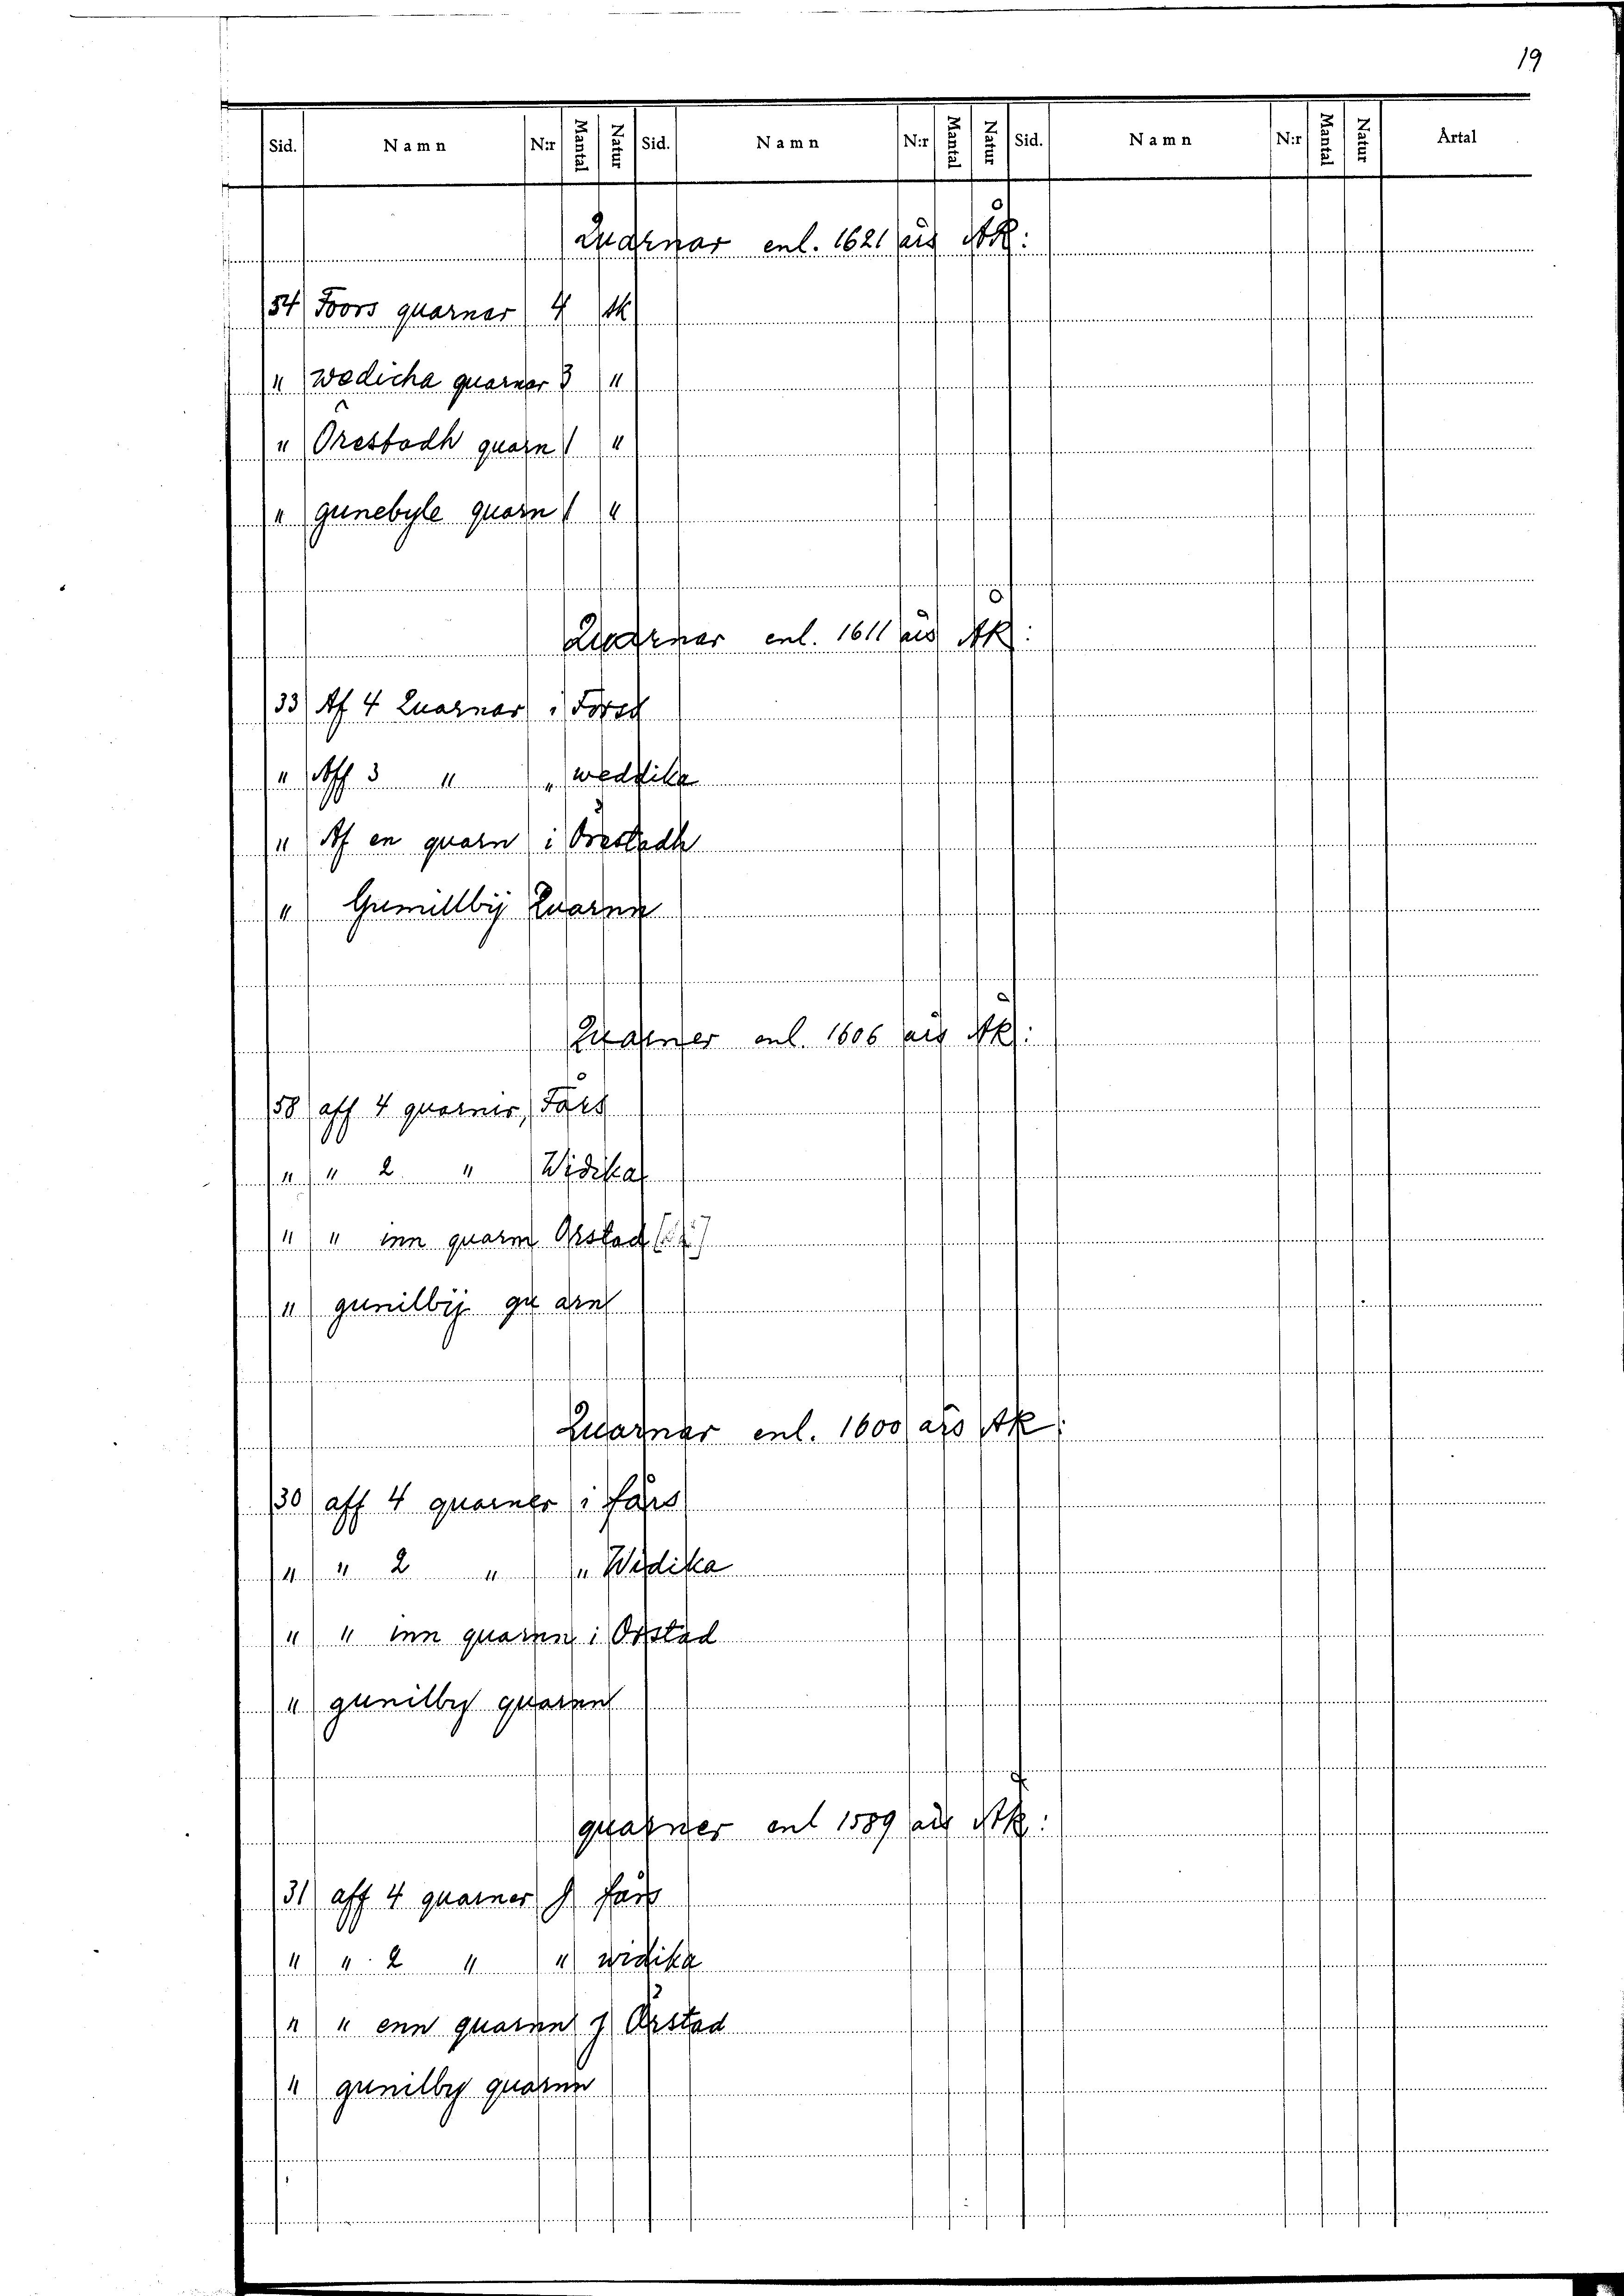 19
Sid. Namn N:r Mantal Natur Sid. Namn N:r Mantal Natur Sid. Namn N:r Mantal Natur Årtal
Quarnar enl. 1621 års ÅK:
54 Foors quarnar 4 sk
" wedicha quarnar 3 "
" Örestadh quarn 1 "
" gunebyle quarn 1 "
Quarnar enl. 1611 års ÅK:
33 Af 4 Quarnar i Forss
" Aff 3 " " weddika
" Af en quarn i Örestadh
" Gunillbij Quarnn
Quarner enl. 1606 års ÅK:
58 aff 4 quarner, Fårs
" " 2 " Widika
" " inn quarnn Orstad
" gunilbij quarn
Quarnar enl. 1600 års ÅK:
30 aff 4 quarner i fårs
" " 2 " " Widika
" " inn quarnn i Orstad
" gunilby quarnn
quarner enl 1589 års ÅK:
31 aff 4 quarner j fårs
" " 2 " " widika
" " enn quarnn j Örstad
" gunilby quarnn